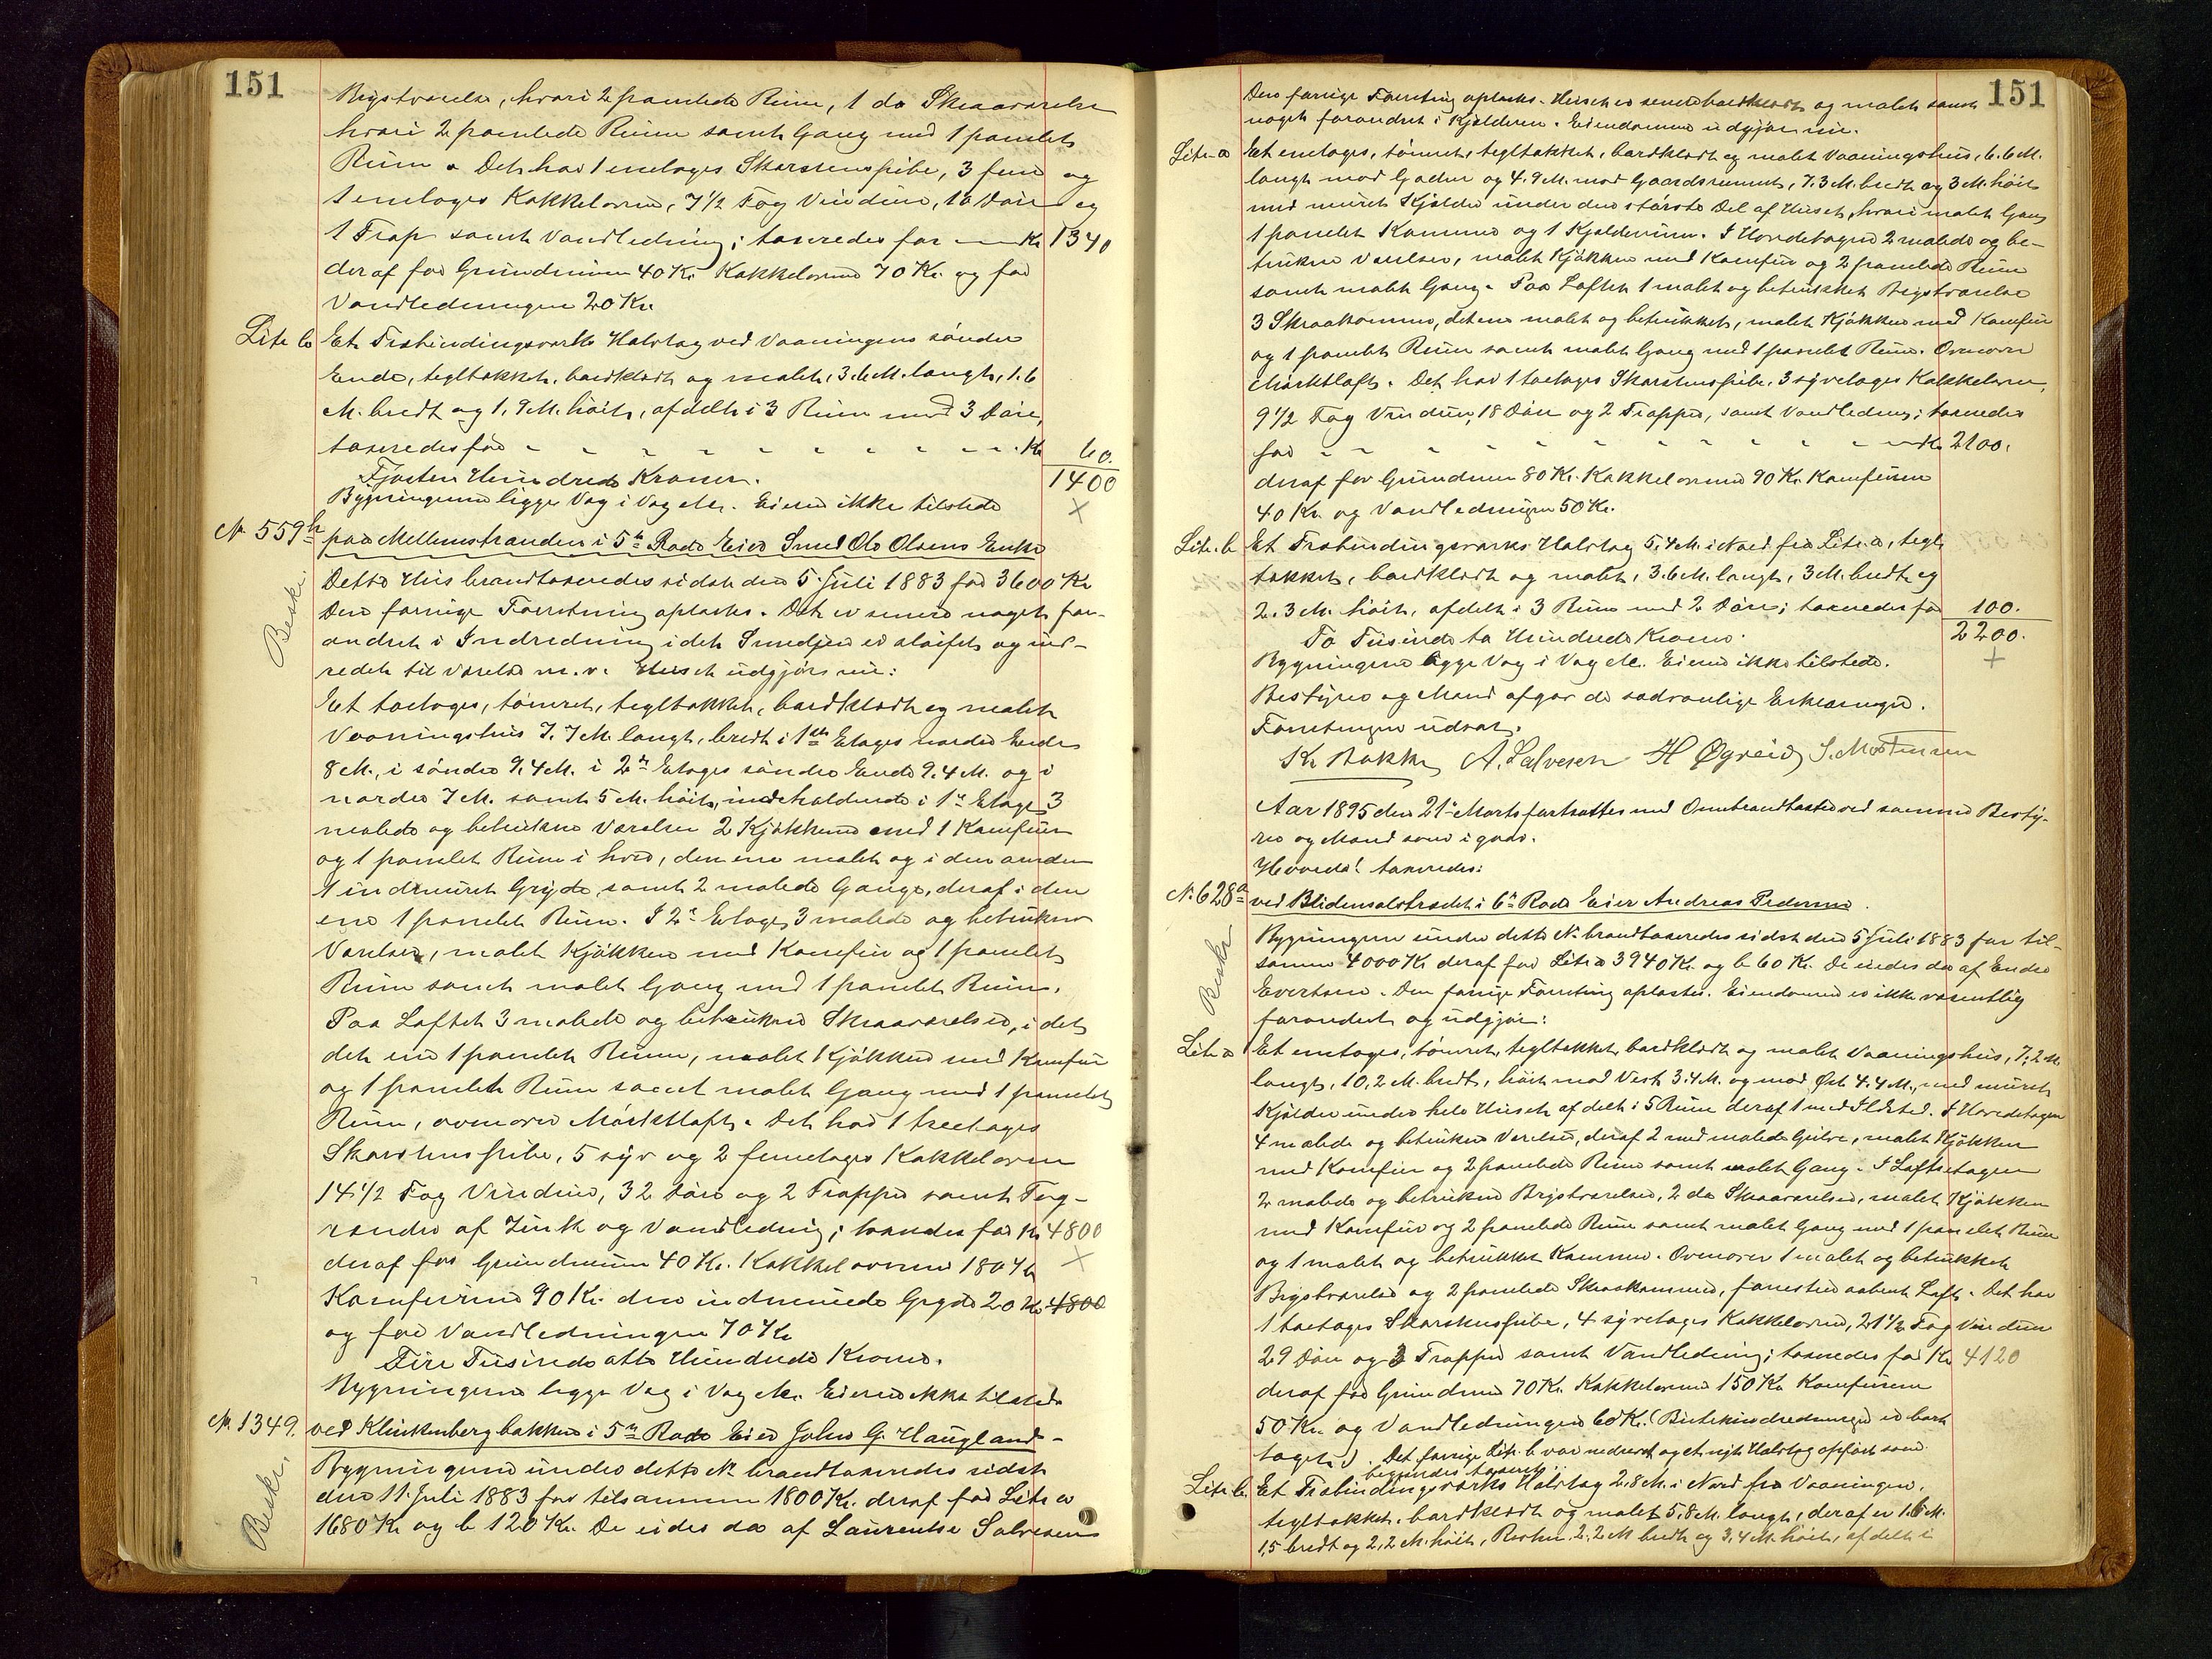 151
Bigstværelse, hvori 2 panelede Rum, 1 do Skraaværelse
hvori 2 panelede Rum samt Gang med 1 panelet
Rum. Det har 1 enetages Skorstenspibe, 3 fem og
1 enetages Kakkelovne, 7 1/2 Fag Vinduer, 10 Døre og
1 Trap samt Vandledning; taxeredes for Kr 1340
deraf for Grundmuren 40 Kr. Kakkelovne 70 Kr. og for
Vandledningen 20 Kr.
Litr b Et Trebindingsværks Halvtag ved Vaaningens søndre
Ende, tegltækket, bordklædt og malet, 3.6 M. langt, 1.6
M. bredt og 1.9 M. høit, afdelt i 3 Rum med 3 Døre,
taxeredes for - - - Kr 60.
Fjorten Hundrede Kroner. 1400
Bygningerne ligge Væg i Væg etc. Eieren ikke tilstede ×
N. 559 b paa Mellemstranden i 5te Rode Eier Smed Ole Olsens Enke
Beskr. Dette Hus brandtaxeredes sidst den 5 Juli 1883 for 3600 Kr
Den forrige Forretning oplæstes. Det er senere noget for-
andret i Indredning idet Smedjen er sløifet og ind-
redet til Værelse m.v. Huset udgjør nu:
Et toetages, tømret, tegltækket, bordklædt og malet
Vaaningshus 7.7 M. langt, bredt i 1ste Etages nordre Ende
8 M., i søndre 9.4 M. i 2n Etages søndre Ende 9.4 M. og i
nordre 7 M. samt 5 M. høit, indeholdende i 1e Etage 3
malede og betrukne Værelser 2 Kjøkkener med 1 Komfur
og 1 panelet Rum i hver, den ene malet og i den anden
1 indmuret Gryde, samt 2 malede Gange, deraf i den
ene 1 panelet Rum. I 2n Etage 3 malede og betrukne
Værelser, malet Kjøkken med Komfur og 1 panelet
Rum samt malet Gang med 1 panelet Rum.
Paa Loftet 3 malede og betrukne Skraaværelser, i det
det ene 1 panelet Rum, malet Kjøkken med Komfur
og 1 panelet Rum samt malet Gang med 1 panelet
Rum, ovenover Mørkloft. Det har 1 treetages
Skorstenspibe, 5 syv og 2 femetages Kakkelovne
14 1/2 Fag Vinduer, 32 Døre og 2 Trapper samt Tag-
render af Zink og Vandledning; taxeredes for Kr 4800
deraf for Grundmuren 40 Kr. Kakkelovnene 180 Kr ×
Komfurerne 90 Kr. den indmurede Gryde 20 Kr 4800
og for Vandledningen 70 Kr
Fire Tusinde otte Hundrede Kroner.
Bygningerne ligge Væg i Væg etc. Eieren ikke tilstede
N. 1349. ved Klinkenbergbakken i 5te Rode Eier John G. Haugland
Beskr. Bygningerne under dette No brandtaxeredes sidst
den 11 Juli 1883 for tilsammen 1800 Kr. deraf for Litr a
1680 Kr og b 120 Kr. De eides da af Laurentse Salvesen
151
Den forrige Forretning oplæstes. Huset er senere bordklædt og malet samt
noget forandret i Kjælderen. Eiendommen udgjør nu.
Litr. a Et enetages, tømret, tegltækket, bordklædt og malet Vaaningshus, 6.6 M.
langt mod Gaden og 4.9 M. mod Gaardsrummet, 7.3 M. bredt og 3 M. høit
med muret Kjælder under den største Del af Huset, hvori malet Gang
1 panelet Kammer og 1 Kjælderrum. I Hovedetagen 2 malede og be-
trukne Værelser, malet Kjøkken med Komfur og 2 panelede Rum
samt malet Gang. Paa Loftet 1 malet og betrukket Bigstværelse
3 Skraakammer, det ene malet og betrukket, malet Kjøkken med Komfur
og 1 panelet Rum samt malet Gang med 1 panelet Rum. Ovenover
Mørkloft. Det har 1 toetages Skorstenspibe, 3 syvetages Kakkelovne,
9 1/2 Fag Vinduer, 18 Døre og 2 Trapper, samt Vandledning; taxeredes
for - - - Kr 2100.
deraf for Grundmuren 80 Kr. Kakkelovnene 90 Kr. Komfurerne
40 Kr. og Vandledningen 50 Kr.
Litr. b Et Trebindingsværks Halvtag 5,4 M. i Nord fra Litr. a, tegl-
tækket, bordklædt og malet, 3.6 M. langt, 3 M. bredt og
2.3 M. høit, afdelt i 3 Rum med 2 Døre; taxeredes for 100.
To Tusinde to Hundrede Kroner. 2200.
Bygningerne ligge Væg i Væg etc. Eieren ikke tilstede. +
Bestyrer og Mænd afgav de sædvanlige Erklæringer.
Forretningen udsat.
K. Bakke A. Salvesen H Øgreid S. Mortensen
Aar 1895 den 21de Marts fortsattes med Ombrandtaxter ved samme Besty-
rer og Mænd som igaar.
Hvorda taxeredes:
N. 628 a ved Blidensolstrædet i 6te Rode Eier Andreas Pedersen.
Beskr Bygningerne under dette No brandtaxeredes sidst den 5 Juli 1883 for til-
sammen 4000 Kr deraf for Litr a 3940 Kr. og b 60 Kr. De eides da af Endre
Evertsen. Den forrige Forretning oplæstes. Eiendommen er ikke væsentlig
forandret og udgjør:
Litr a Et enetages, tømret, tegltækket, bordklædt og malet Vaaningshus, 7,2 M.
langt, 10,2 M. bredt, høit mod Vest 3.4 M. og mod Øst 4.4 M., med muret
Kjælder under hele Huset afdelt i 5 Rum deraf 1 med Ildsted. I Hovedetagen
4 malede og betrukne Værelser, deraf 2 med malede Gulve, malet Kjøkken
med Komfur og 2 panelede Rum samt malet Gang. I Loftsetagen
2 malede og betrukne Bigstværelser, 2 do Skraaværelser, malet Kjøkken
med Komfur og 2 panelede Rum samt malet Gang med 1 panelet Rum
og 1 malet og betrukket Kammer. Ovenover 1 malet og betrukket
Bigstværelse og 2 panelede Skraakammer, forresten aabent Loft. Det har
1 toetages Skorstenspibe, 4 syvetages Kakkelovne, 21 1/2 Fag Vinduer
29 Døre og 3 Trapper samt Vandledning; taxeredes for Kr 4120
deraf for Grundmuren 70 Kr. Kakkelovnene 150 Kr Komfurerne
50 Kr. og Vandledningen 60 Kr. ( er bort-
taget). Det forrige Litr. b var nedrevet og et nyt Halvtag opført som
begjæredes taxeret:
Litr b. Et Trebindingsværks Halvtag 2.8 M. i Nord fra Vaaningen,
tegltækket, bordklædt og malet 5.8 M. langt, deraf er 1.6 M.
1,5 bredt og 2,2 M. høit, Resten 2,2 M bredt og 3,4 M. høit, afdelt i